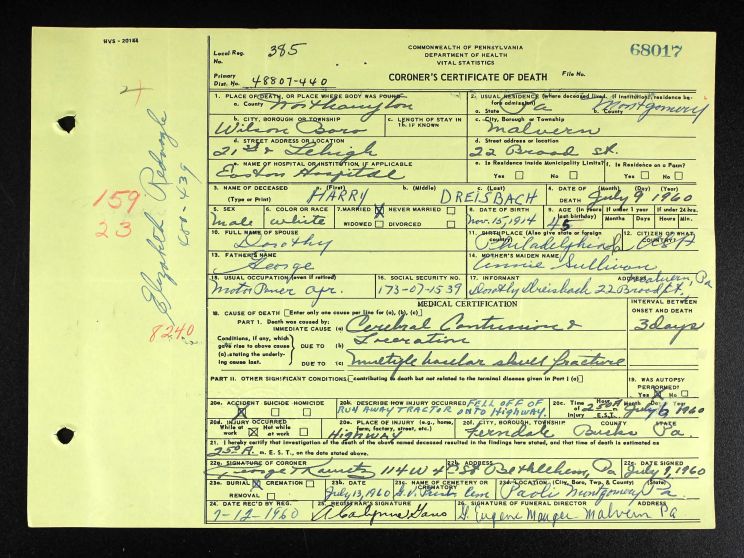 HVS - 20144
Local Reg. No. 385
COMMONWEALTH OF PENNSYLVANIA
DEPARTMENT OF HEALTH
VITAL STATISTICS
68017
Primary Dist. No. 48807-440
CORONER'S CERTIFICATE OF DEATH
File No.
1. PLACE OF DEATH, OR PLACE WHERE BODY WAS FOUND
a. County Northampton
2. USUAL RESIDENCE (Where deceased lived. If institution, residence before admission)
a. State Pa b. County Montgomery
b. CITY, BOROUGH OR TOWNSHIP
Wilson Boro
c. LENGTH OF STAY IN 1b. IF KNOWN
c. City, Borough or Township
Malvern
d. STREET ADDRESS OR LOCATION
21st & Lehigh
d. Street address or location
22 Broad St.
e. NAME OF HOSPITAL OR INSTITUTION, IF APPLICABLE
Easton Hospital
e. Is Residence inside Municipality Limits?
Yes No
f. Is Residence on a Farm?
Yes No
3. NAME OF DECEASED (Type or Print)
a. (First) HARRY
b. (Middle)
c. (Last) DREISBACH
4. DATE OF DEATH July 9 1960
5. SEX
Male
6. COLOR OR RACE
White
7. MARRIED X NEVER MARRIED
WIDOWED DIVORCED
8. DATE OF BIRTH
Nov. 15, 1914
9. AGE (In years last birthday) 45
If under 1 year Months Days
If under 24 hrs. Hours Min.
10. FULL NAME OF SPOUSE
Dorothy
11. BIRTHPLACE (Also give state or foreign country)
Philadelphia
12. CITIZEN OF WHAT COUNTRY?
USA
13. FATHER'S NAME
George
14. MOTHER'S MAIDEN NAME
Annie Sullivan
15. USUAL OCCUPATION (even if retired)
Motor Paver Opr.
16. SOCIAL SECURITY NO.
173-07-1539
17. INFORMANT ADDRESS
Dorothy Dreisbach 22 Broad St. Malvern, Pa
MEDICAL CERTIFICATION
INTERVAL BETWEEN ONSET AND DEATH
18. CAUSE OF DEATH (Enter only one cause per line for (a), (b), (c)
PART 1. Death was caused by:
IMMEDIATE CAUSE (a) Cerebral Contusion &
3 days
Conditions, if any, which gave rise to above cause (a), stating the underlying cause last.
DUE TO (b) Laceration
DUE TO (c) Multiple basular skull fracture
PART II. OTHER SIGNIFICANT CONDITIONS (contributing to death but not related to the terminal disease given in Part I (a)
19. WAS AUTOPSY PERFORMED?
Yes No
20a. ACCIDENT SUICIDE HOMICIDE
X
20b. DESCRIBE HOW INJURY OCCURRED FELL OFF OF
RUN AWAY TRACTOR ONTO HIGHWAY.
20c. Time of Injury Hour 2:50 A E.S.T.
Month Day Year
July 6 1960
20d. INJURY OCCURRED
While at work X Not while at work
20e. PLACE OF INJURY (e.g., home, farm, factory, street, etc.)
HIGHWAY
20f. CITY, BOROUGH, TOWNSHIP COUNTY STATE
Ferndale Bucks Pa.
21. I hereby certify that investigation of the death of the above named deceased resulted in the findings here stated, and that time of death is estimated at
2:50 A. m. E. S. T., on date stated above.
22a. SIGNATURE OF CORONER
22b. ADDRESS
114 W 4 St Bethlehem, Pa
22c. DATE SIGNED
July 9, 1960
23a. BURIAL X CREMATION
REMOVAL
23b. DATE
July 13, 1960
23c. NAME OF CEMETERY OR CREMATORY
23d. LOCATION (City, Boro, Twp. & County) (State)
Paoli Montgomery Pa.
24. DATE REC'D BY REG.
7-12-1960
25. REGISTRAR'S SIGNATURE
26. SIGNATURE OF FUNERAL DIRECTOR ADDRESS
G. Eugene Mauger - Malvern Pa
Elizabeth
159
23
8240